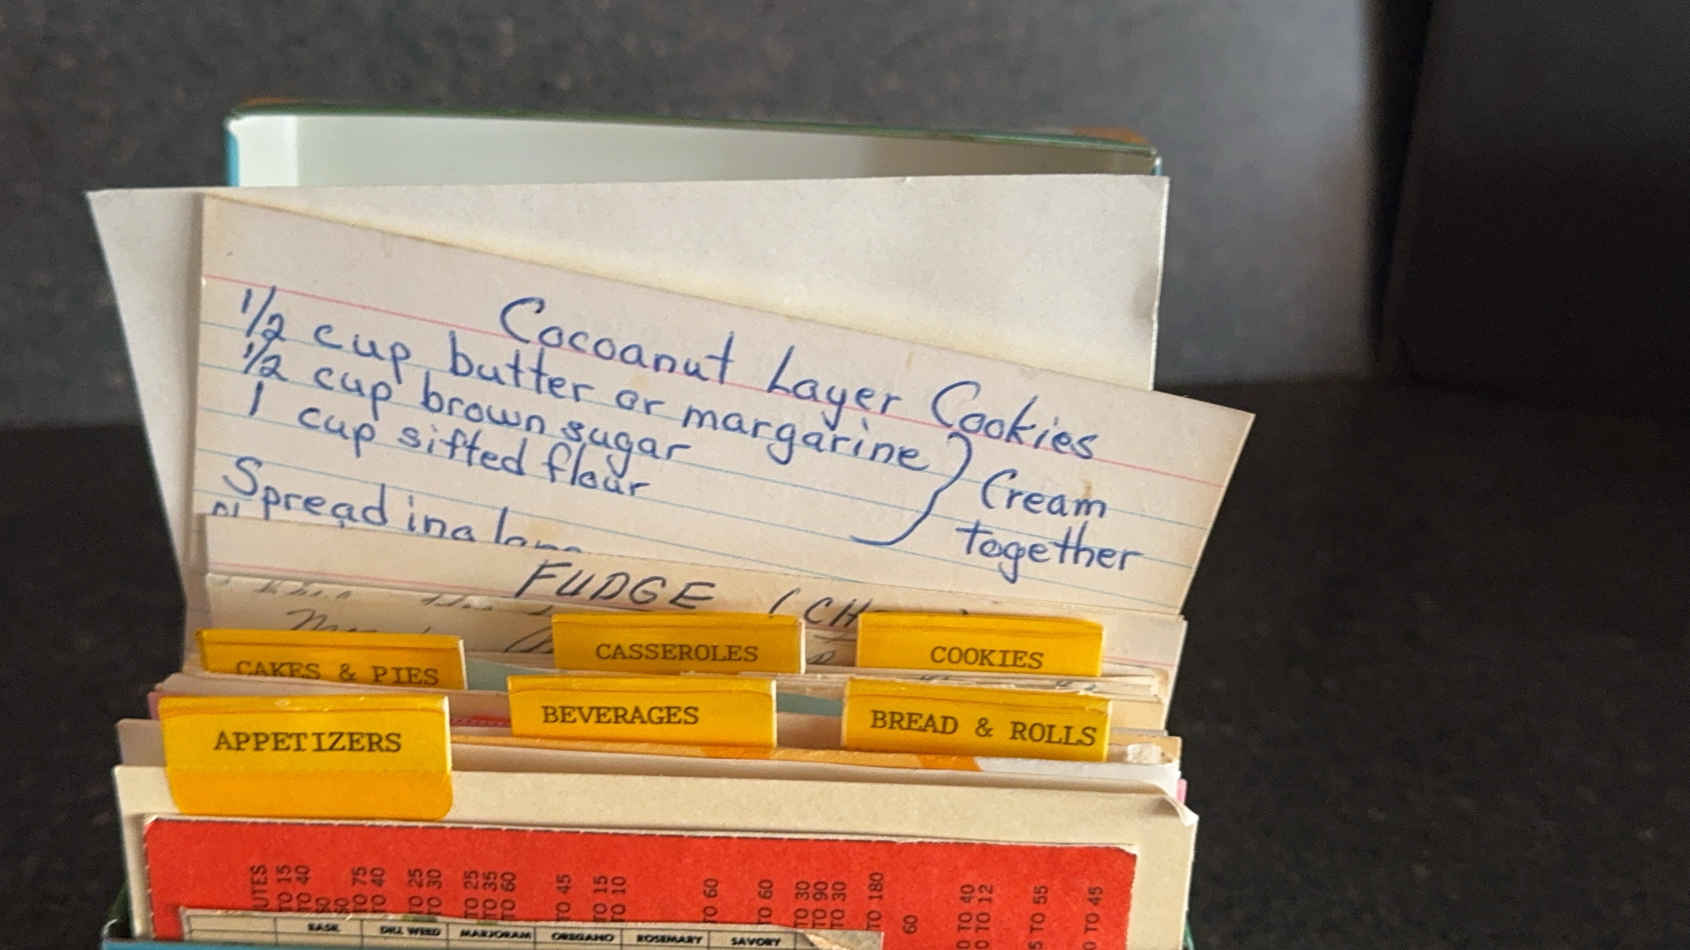 Cocoanut Layer Cookies
1/2 cup butter or margarine
1/2 cup brown sugar
1 cup sifted flour
Cream
together
Spread in a
FUDGE (CH
CAKES & PIES
CASSEROLES
COOKIES
APPETIZERS
BEVERAGES
BREAD & ROLLS
UTES
TO 15
TO 40
TO 75
TO 40
TO 25
TO 30
TO 25
TO 35
TO 60
TO 45
TO 15
TO 10
TO 60
TO 60
TO 30
TO 90
TO 30
TO 180
60
0 TO 40
0 TO 12
5 TO 55
0 TO 45
DILL WEED
MARJORAM
OREGANO
ROSEMARY
SAVORY